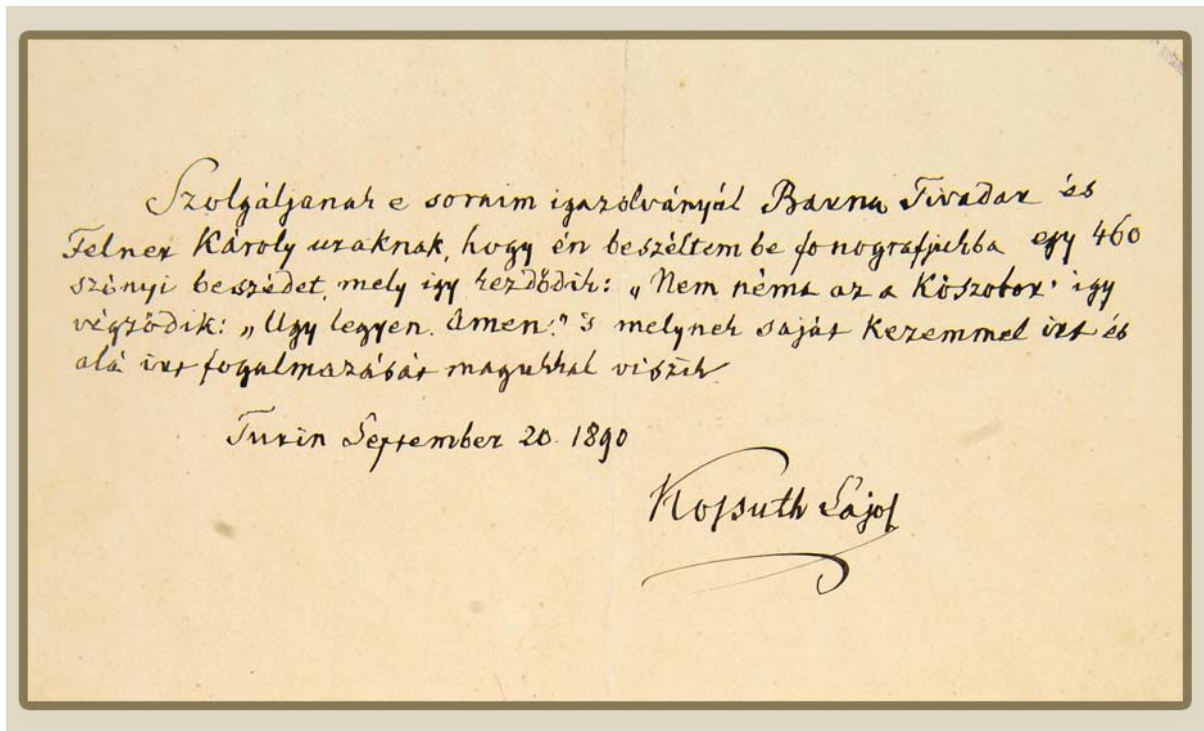 Szolgáljanak e soraim igazolványúl Barna Tivadar és
Felner Károly uraknak, hogy én beszéltem be fonografjukba egy 460
szónyi beszédet, mely igy kezdődik: „Nem néma az a Kőszobor" igy
végződik: „Ugy legyen. Amen." 's melynek saját kezemmel irt és
alá irt fogalmazását magukkal viszik
Turin September 20. 1890
Kossuth Lajos